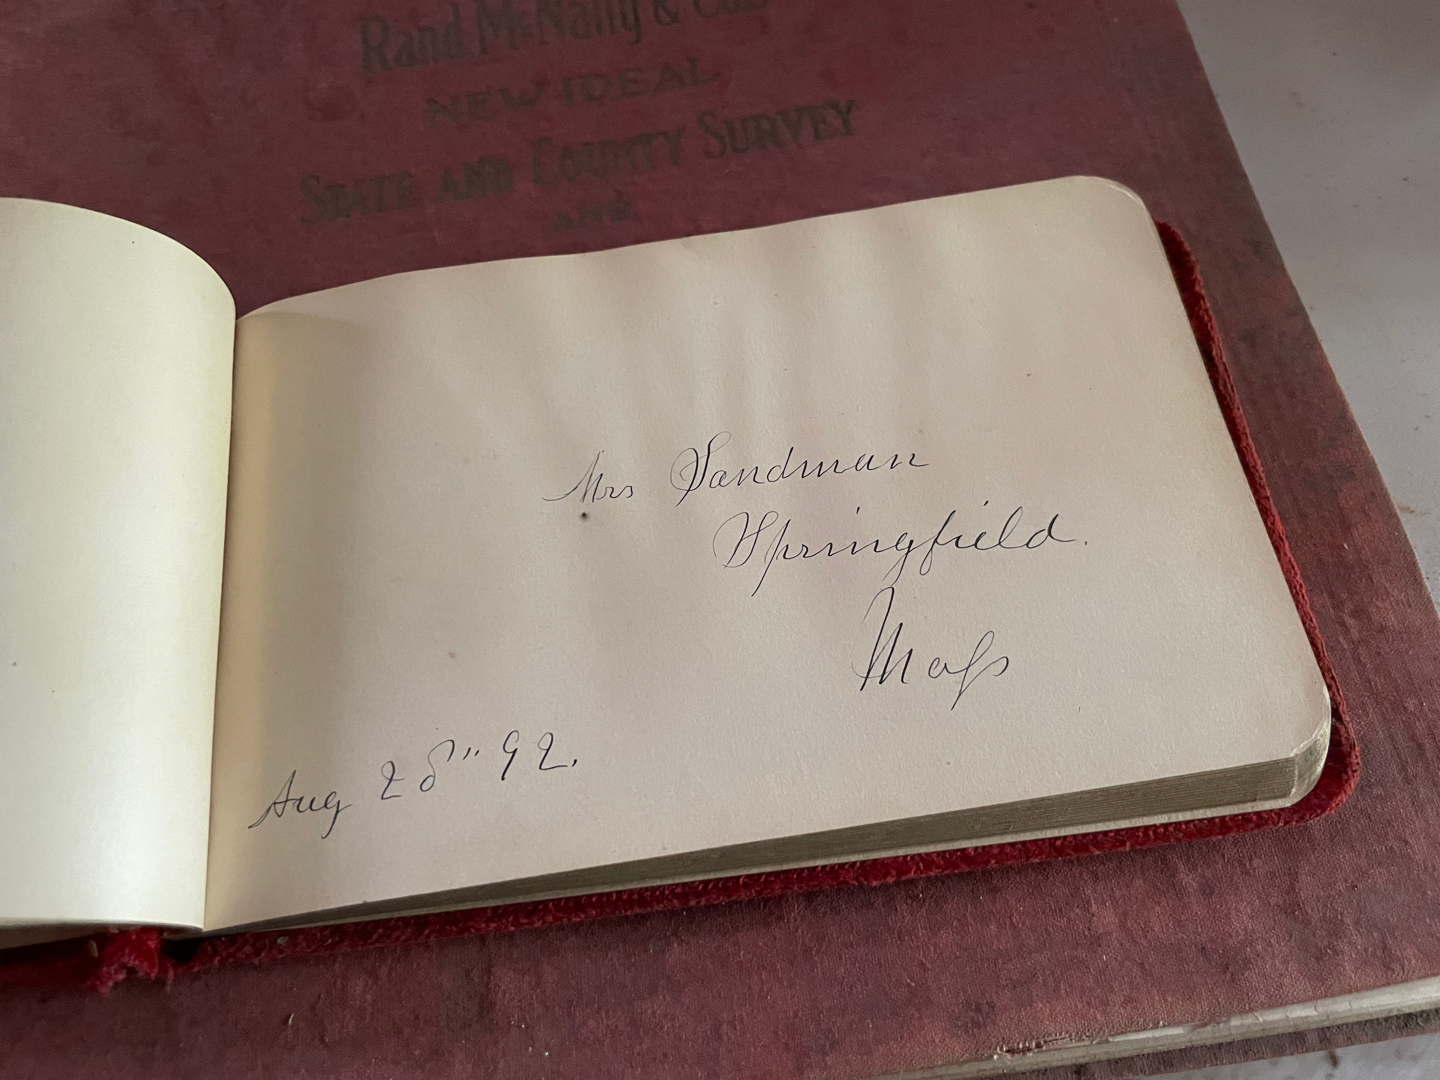 Rand McNally & Co's
NEW IDEAL
STATE AND COUNTY SURVEY
AND
Mrs Sandman
Springfield.
Mass
Aug 28" 92.